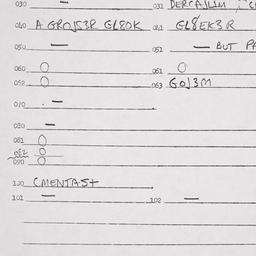 030 — 031
040 A GROJS3R GL8OK 041 GL8EK3R
050 — 051 — BUT
060 O 061 O
062 O 063 GOJ3M
070 —
080 —
081 O
082 O
090 O
100 CMENTAST
101 — 102 —